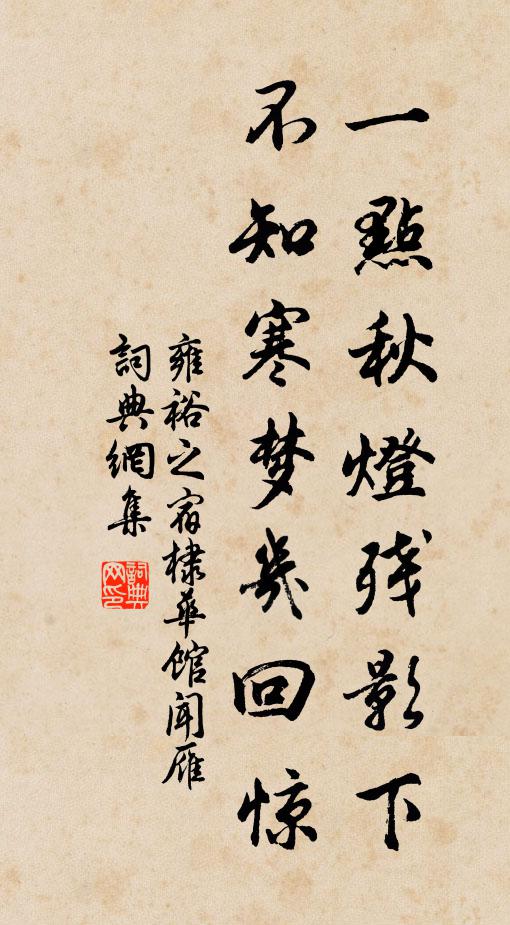 一點秋燈残影下
不知寒梦幾回惊
雍裕之宿棣華館聞雁
詞典網集
詞典网印